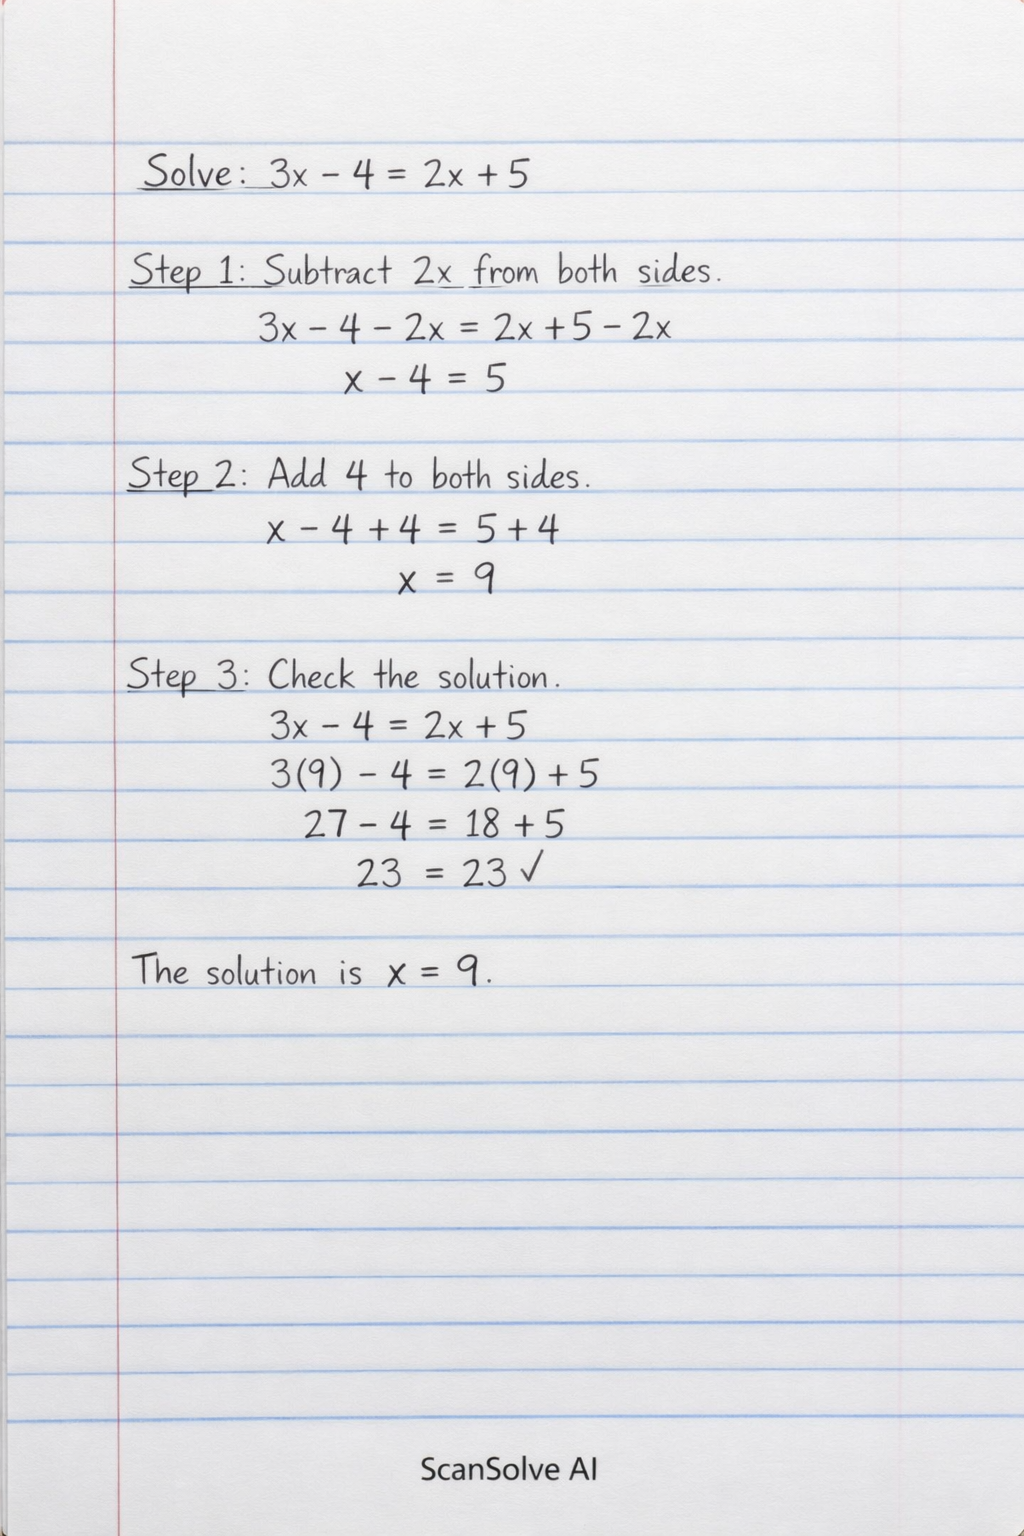 Solve: 3x - 4 = 2x + 5
Step 1: Subtract 2x from both sides.
3x - 4 - 2x = 2x + 5 - 2x
x - 4 = 5
Step 2: Add 4 to both sides.
x - 4 + 4 = 5 + 4
x = 9
Step 3: Check the solution.
3x - 4 = 2x + 5
3(9) - 4 = 2(9) + 5
27 - 4 = 18 + 5
23 = 23 ✓
The solution is x = 9.
ScanSolve AI